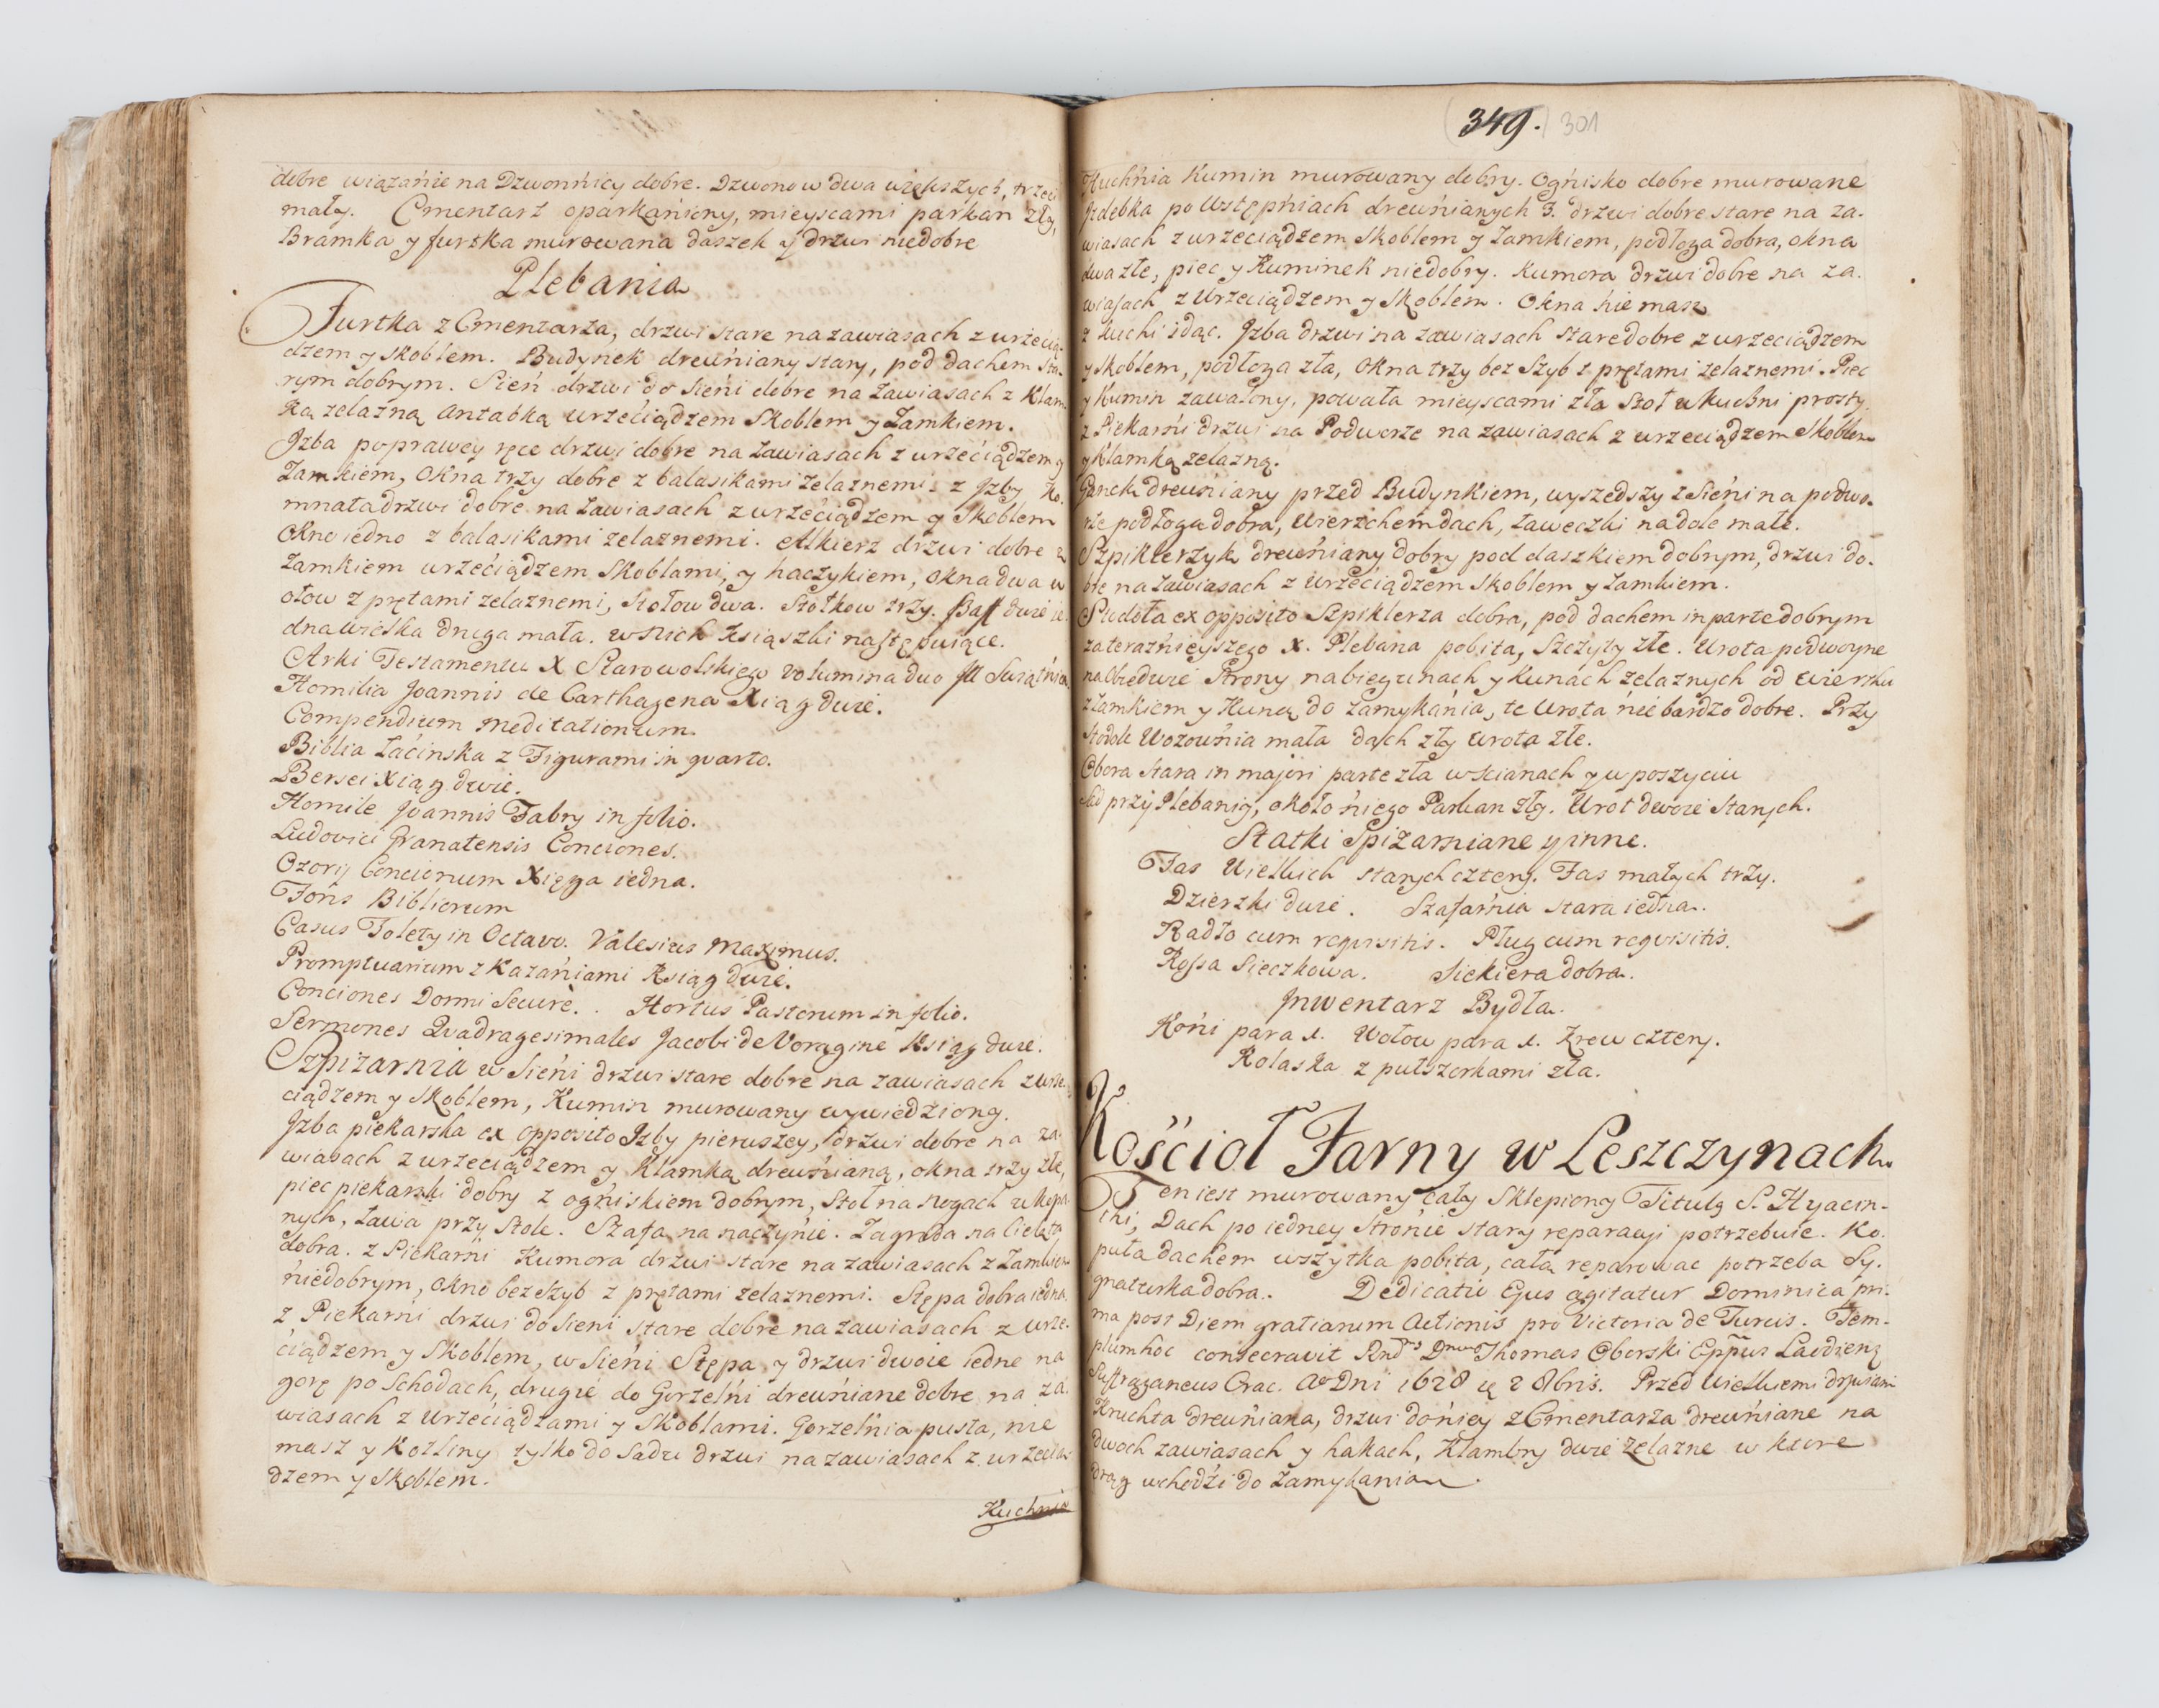 dobre wiązánie na Dzwonńicy dobre. Dzwonow dwa większych, trzeci
mały. Cmentarz oparkańiony, mieyscami parkan zły,
Bramka y furtka murowana daszek y drzwi niedobre
Plebania
Furtka z Cmentarza, drzwi stare na zawiasach z wrzecią-
dzem y skoblem. Budynek drewńiany stary, pod dachem sta-
rym dobrym. Sień drzwi do Sieni dobre na zawiasach z Klam-
ką zelazną antabką wrzeciądzem Skoblem y Zamkiem.
Jzba poprawey ręce drzwi dobre na zawiasach z wrzeciądzem y
Zamkiem, Okna trzy dobre z balasikami zelaznemi. z Jzby Ko-
mnata drzwi dobre na zawiasach z wrzeciądzem y Skoblem
Okno iedno z balasikami zelaznemi. Alkierz drzwi dobre z
Zamkiem wrzeciądzem Skoblami, y haczykiem, okna dwa w
ołow z prętami zelaznemi, Stołow dwa. Stołkow trzy. Szaff dwie ie-
dna wielka druga mała. w nich książki następuiące.
Arki Testamentu X Starowolskiego volumina duo
Homilia Joannis de Carthagena Xiąg dwie.
Compendium meditationum.
Biblia Łacinska z Figurami in qvarto.
Bersei Xiąg dwie.
Homile Joannis Fabry in folio.
Ludovici Granatensis Conciones.
Ozorij Concionum Xięga iedna.
Fons Bibliorum
Casus Tolety in Octavo. Valesius Maximus.
Promptuarium z Kazańiami Xsiąg dwie.
Conciones Dormi Secure. Hortus Pastorum in folio.
Sermones Qvadragesimales Jacobi de Voragine Xsiąg dwie.
Szpizarnia w Sieńi drzwi stare dobre na zawiasach z wrze-
ciądzem y Skoblem, Kumin murowany wywiedziony.
Jzba piekarska ex opposito Jzby pierwszey, drzwi dobre na za-
wiasach z wrzeciądzem y Klamką drewńianą, okna trzy złe,
piec piekarski dobry z ogńiskiem dobrym, Stoł na nogach wkopa-
nych, Ława przy Stole. Szafa na naczynie. Zagroda na Cielęta
dobra. z Piekarńi Kumora drzwi stare na zawiasach z Zamkiem
niedobrym, okno bez szyb z prętami zelaznemi. Stępa dobra iedna.
z Piekarńi drzwi do Sieni stare dobre na zawiasach z wrze-
ciądzem y Skoblem, w Sieńi Stępa y drzwi dwoie iedne na
gorę po Schodach, drugie do Gorzelńi drewńiane dobre na za-
wiasach z wrzeciądzami y Skoblami. Gorzelńia pusta, nie
masz y Kotliny tylko do Sadu drzwi na zawiasach z wrzecią-
dzem y Skoblem.
Kuchnia
349. 301
Kuchńia Kumin murowany dobry. Ogńisko dobre murowane
Jzdebka po Wstępńiach drewńianych 3. drzwi dobre stare na za-
wiasach z wrzeciądzem Skoblem y Zamkiem, podłoga dobra, okna
dwa złe, piec y Kuminek niedobry. Kumora drzwi dobre na za-
wiasach z Wrzeciądzem y Skoblem. Okna nie masz
z kuchi idąc. Jzba drzwi na zawiasach stare dobre z wrzeciądzem
y Skoblem, podłoga zła, Okna trzy bez Szyb z prętami zelaznemi. Piec
y Kumin zawalony, powała mieyscami zła Stoł w Kuchni prosty.
z Piekarńi drzwi na Podworze na zawiasach z wrzeciądzem Skoblem
y Klamką zelazną.
Ganek drewńiany przed Budynkiem, wyszedszy z Sieńi na podwo-
rze podłoga dobra, Wierzchem dach, ławeczki na dole małe.
Szpiklerzyk drewńiany dobry pod daszkiem dobrym, drzwi do-
bre na zawiasach z Wrzeciądzem Skoblem y Zamkiem.
Stodoła ex opposito Szpiklerza dobra, pod dachem in parte dobrym
za teraznieyszego X. Plebana pobita, Szczyty złe. Wrota podwoyne
na Obiedwie Strony na biegunach y kunach zelaznych od wierzchu
z Zamkiem y Kuną do zamykánia, te Wrota nie bardzo dobre. Przy
Stodole Wozowńia mała dach zły Wrota złe.
Obora stara in majori parte zła w scianach y w poszyciu
Sad przy Plebanij, około niego Parkan zły. Wrot dwoie Starych.
Statki Spizarniane y inne.
Fas Wielkich starych cztery. Fas małych trzy.
Dzierzki dwie. Szafarńia stara iedna.
Radło cum reqvisitis. Pług cum reqvisitis.
Kossa Sieczkowa. Siekiera dobra.
Jnwentarz Bydła.
Końi para 1. Wołow para 1. Krow cztery.
Kolaska z pułszorkami zła.
Kościoł Farny w Leszczynach.
Ten iest murowany cały Sklepiony Titulo S. Hyacin-
thi, Dach po iedney Strońie stary reparacyi potrzebuie. Ko-
puła dachem wszytka pobita, całą reparowac potrzeba Sy-
gnaturka dobra. Dedicatio Ejus agitatur Dominica pri-
ma post Diem gratiarum Actionis pro Victoria de Turcis. Tem-
plum hoc consecravit Rndus Dnus Thomas Oborski Eppus Laodicens
Suffraganeus Crac. Ao Dni 1628 8bris. Przed Wielkiemi drzwiami
Kruchta drewńiana, drzwi do niey z Cmentarza drewńiane na
dwoch zawiasach y hakach, Klambry dwie zelazne w ktore
drąg wchodźi do zamykania